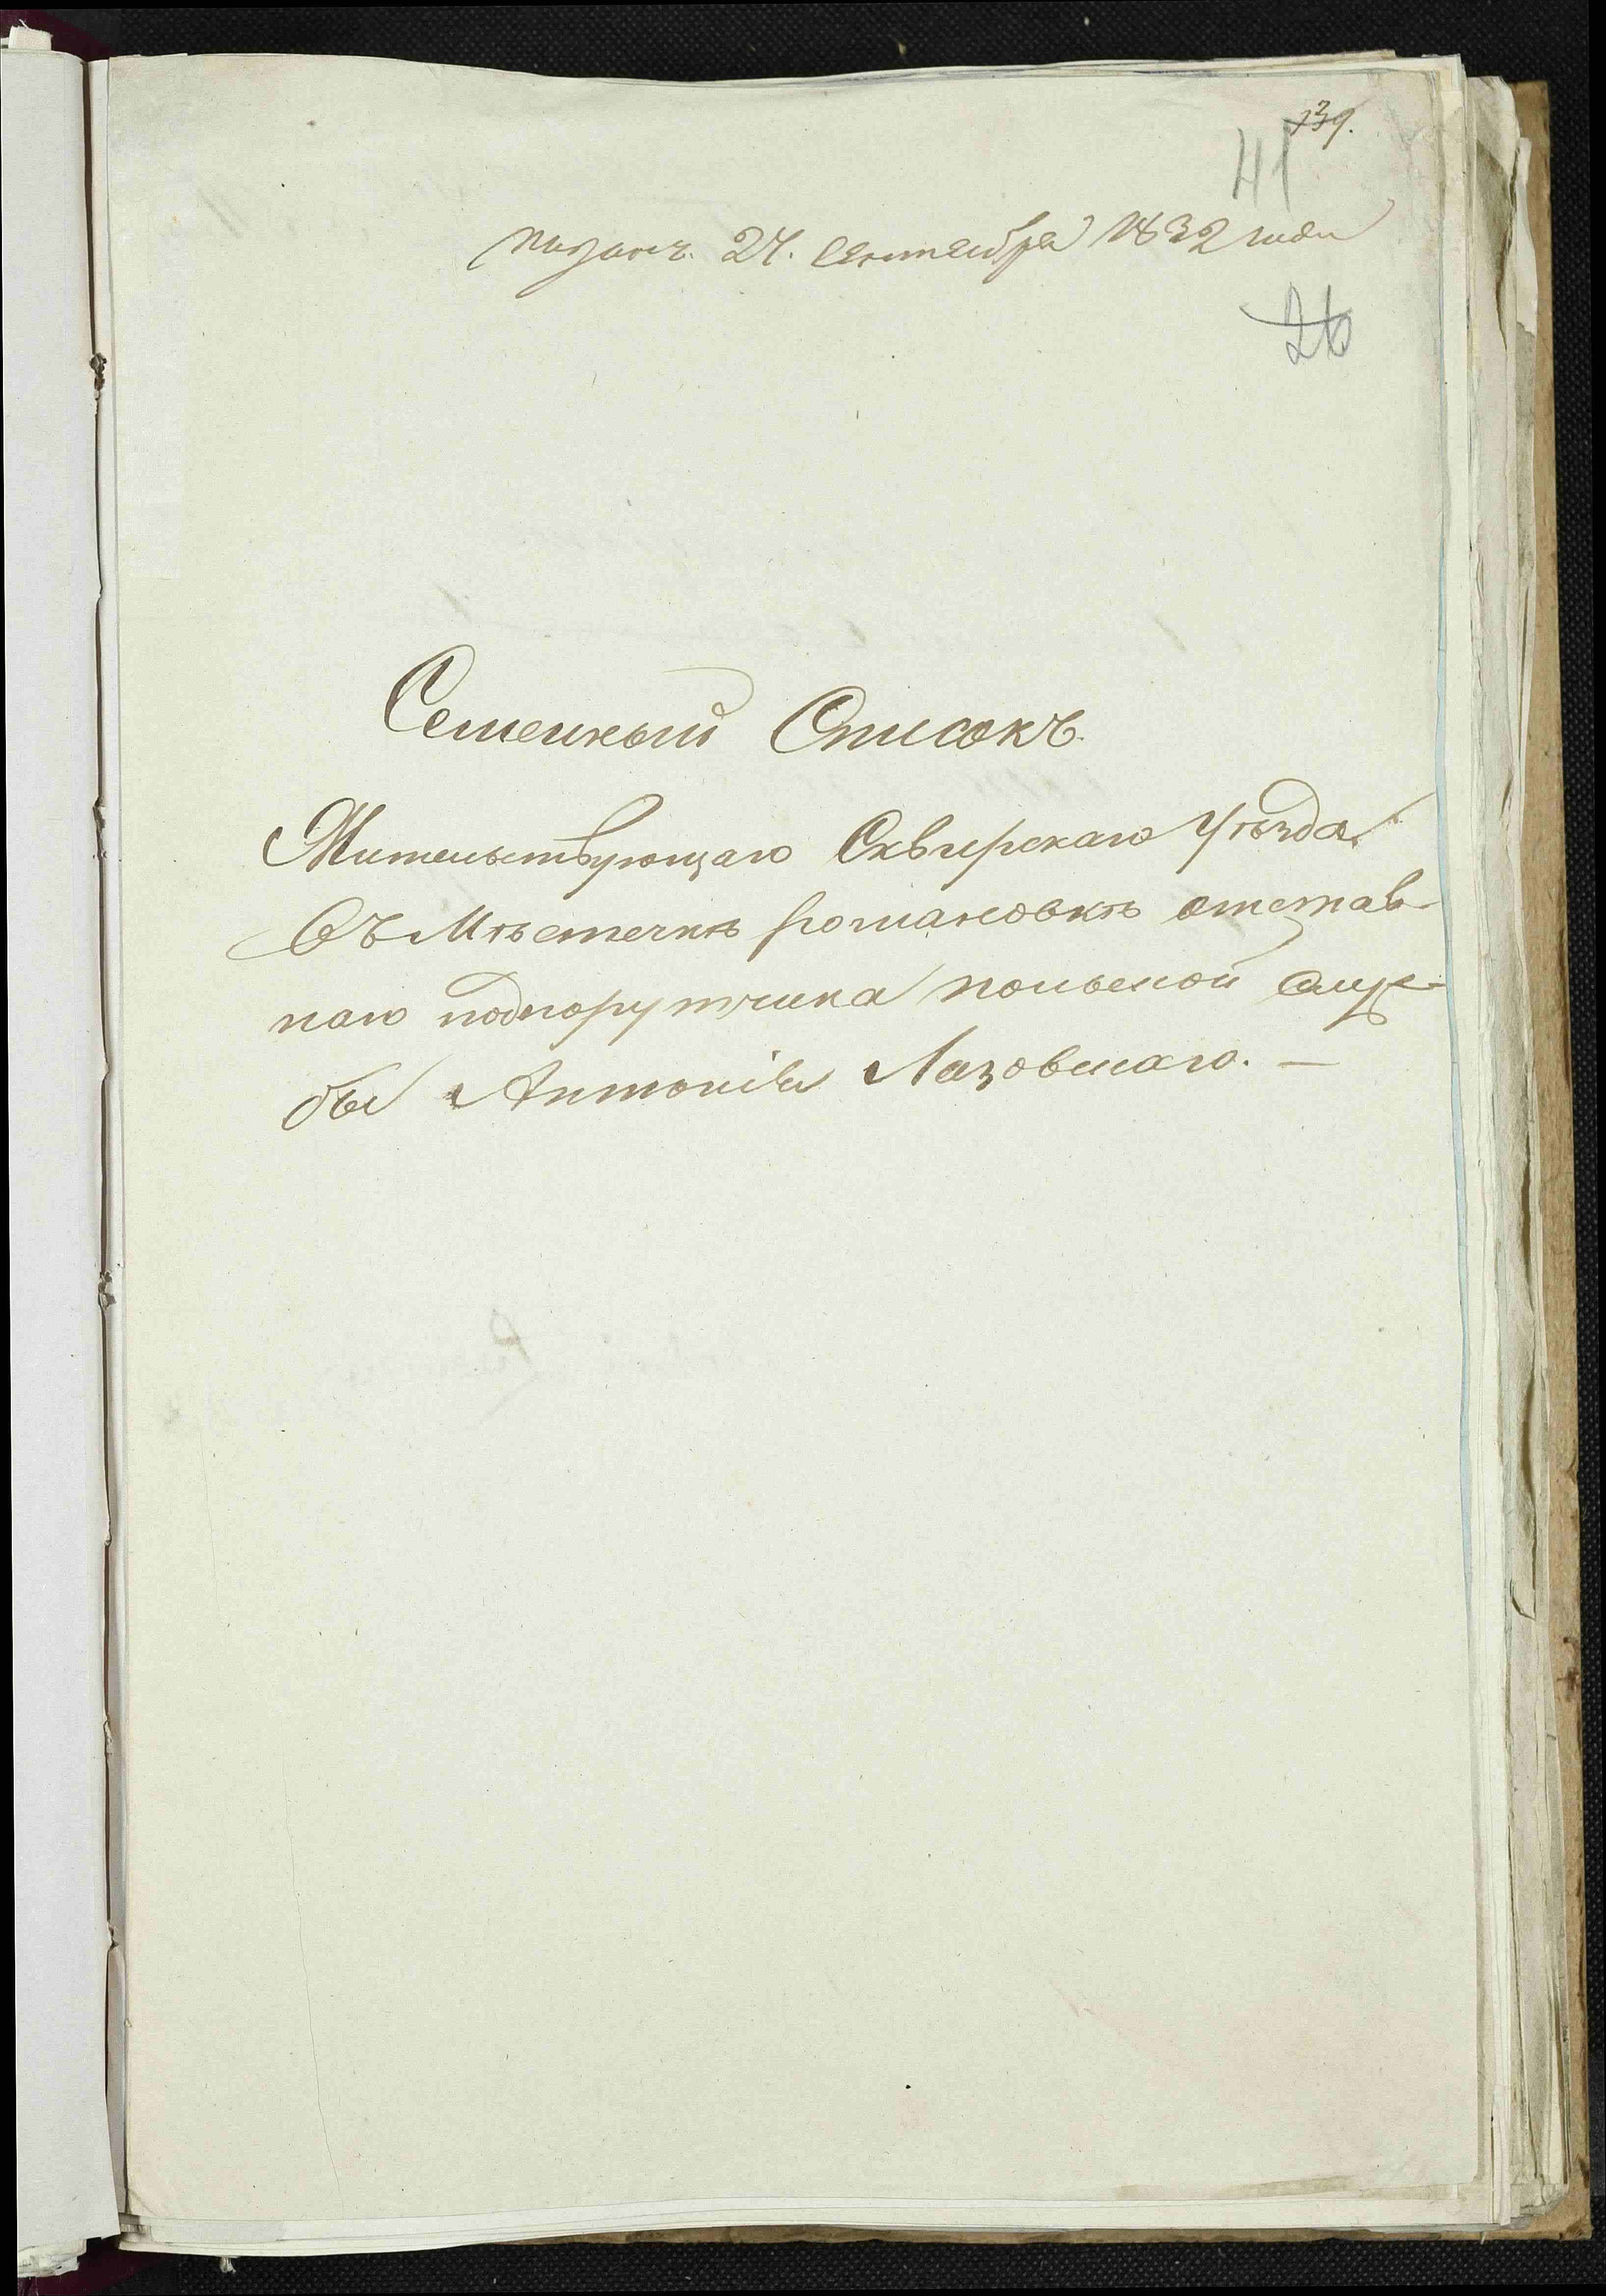 139.
41
подан. 24. Сентября 1832 года
26
Семейный Списокъ.
Жительствующаго Сквирскаго Уѣзда
въ Мѣстечкѣ Романовкѣ отстав-
наго подпорутчика польской служ-
бы Антонія Лазовскаго. —